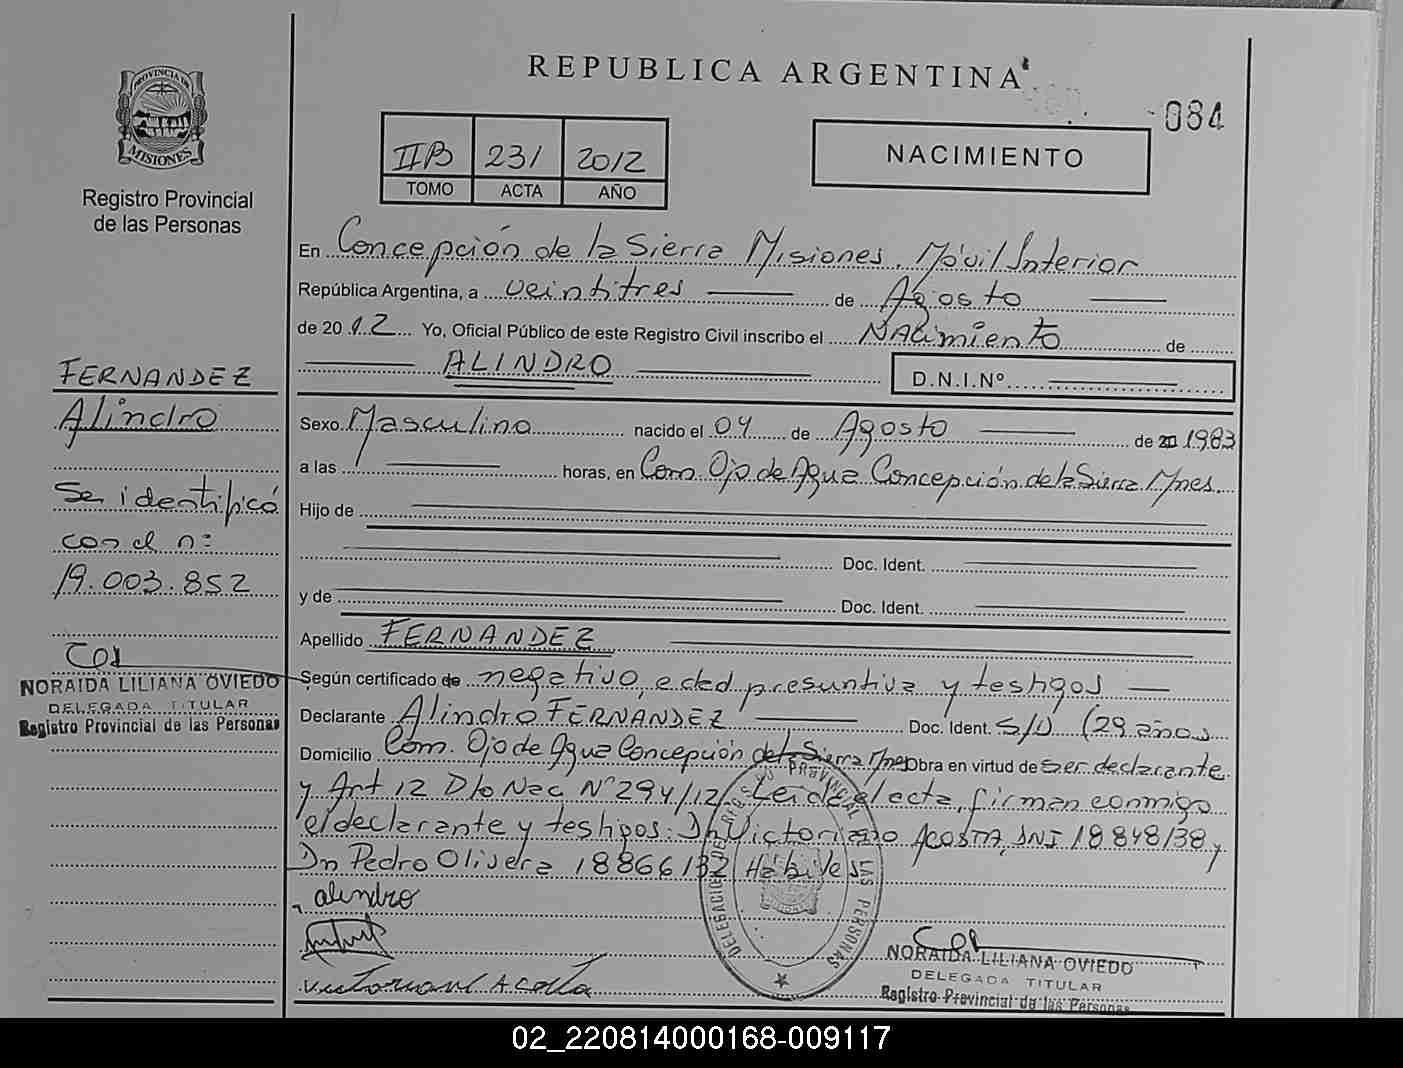 REPUBLICA ARGENTINA
084
PROVINCIA DE
MISIONES
Registro Provincial
de las Personas
IIB 231 2012
TOMO ACTA AÑO
NACIMIENTO
En Concepción de la Sierra Misiones. Móvil Interior
República Argentina, a veintitres de Agosto
de 2012 Yo, Oficial Público de este Registro Civil inscribo el NAcimiento de
ALINDRO
D.N.I.Nº
FERNANDEZ
Alindro
Se identificó
con el nº
19.003.852
NORAIDA LILIANA OVIEDO
DELEGADA TITULAR
Registro Provincial de las Personas
Sexo Masculino nacido el 04 de Agosto de 1983
a las horas, en Com. Ojo de Agua Concepción de la Sierra Mnes.
Hijo de
Doc. Ident.
y de Doc. Ident.
Apellido FERNANDEZ
Según certificado de negativo, edad presuntiva y testigos
Declarante Alindro FERNANDEZ Doc. Ident. S/D (29 años
Domicilio Com. Ojo de Agua Concepción de la Sierra Mnes Obra en virtud de ser declarante
y Art 12 Dto Nac Nº 294/12. Leida el acta, firman conmigo
el declarante y testigos: Dn Victoriano ACOSTA, DNI 18848138 y
Dn Pedro Olivera 18866132 Hábiles
alindro
Victoriano Acosta
DELEGACION REGISTRO PROVINCIAL DE LAS PERSONAS
NORAIDA LILIANA OVIEDO
DELEGADA TITULAR
Registro Provincial de las Personas
02_220814000168-009117